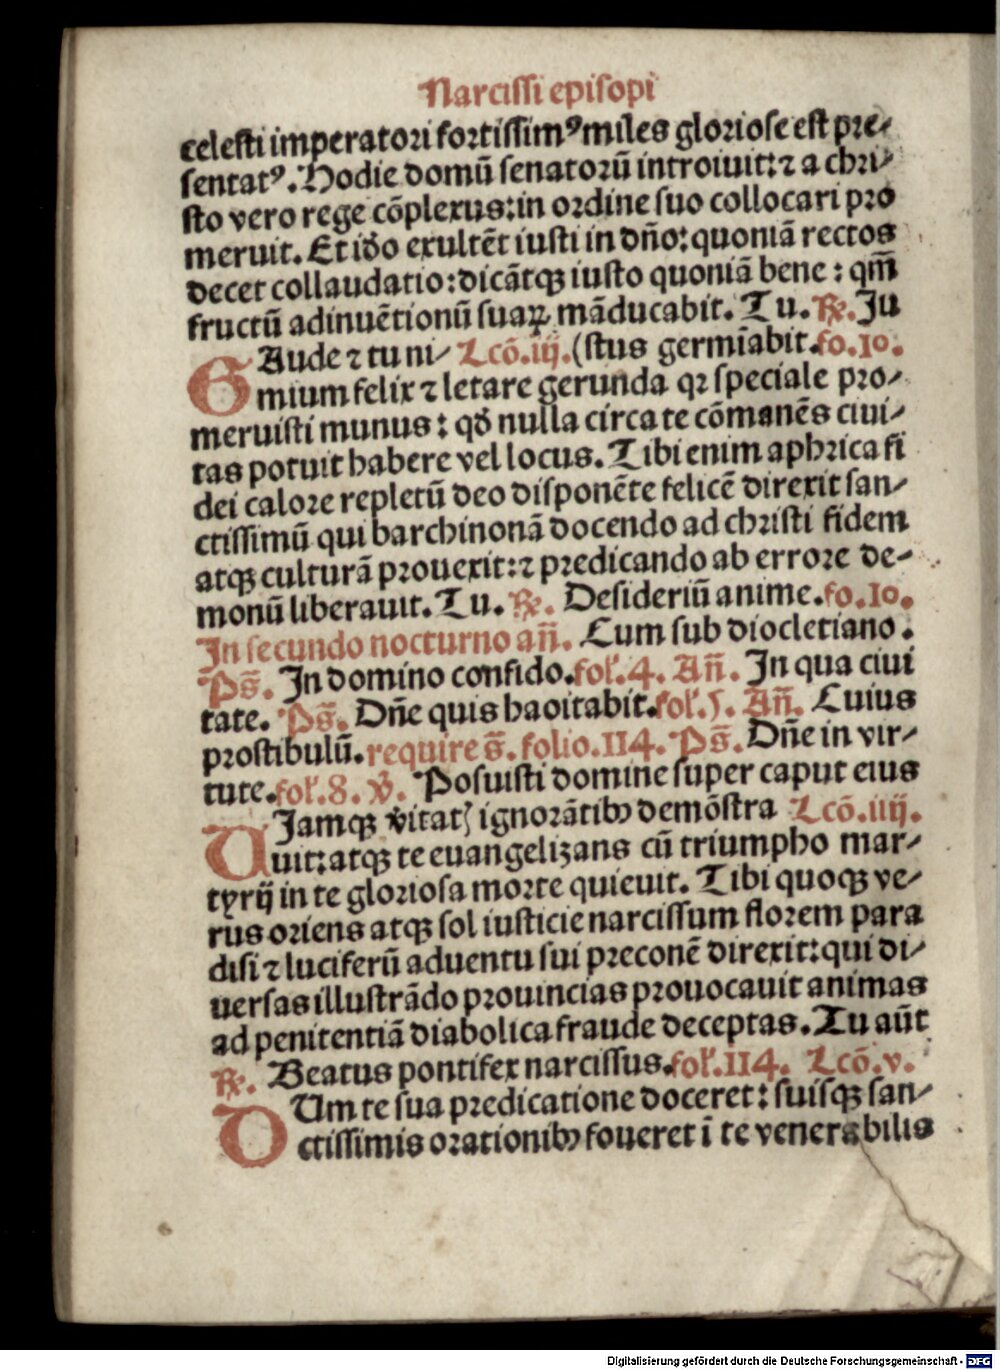 Narcissi episopi
celesti imperatori fortissimꝰ miles gloriose est pre⸗
sentatꝰ. Hodie domū senatorū introiuit: ⁊ a chri⸗
sto vero rege cōplexus: in ordine suo collocari pro
meruit. Et iđo exultēt iusti in dn̄o: quoniā rectos
decet collaudatio: dicātqꝫ iusto quoniā bene: qm̄
fructū adinuētionū suaꝝ māducabit. Tu. ℞. Ju
GAude ⁊ tu ni⸗ Lcō.iij. (stus germīabit. fo.10.
mium felix ⁊ letare gerunda qꝛ speciale pro⸗
meruisti munus: qđ nulla circa te cōmanēs ciui⸗
tas potuit habere vel locus. Tibi enim aphrica fi
dei calore repletū deo disponēte felicē direxit san⸗
ctissimū qui barchinonā docendo ad christi fidem
atqꝫ culturā prouexit: ⁊ predicando ab errore de⸗
monū liberauit. Tu. ℞. Desideriū anime. fo.10.
In secundo nocturno an̄. Cum sub diocletiano.
Ps̄. In domino confido. fol'.4. An̄. In qua ciui
tate. Ps̄. Dn̄e quis haoitabit. fol'.5. An̄. Cuius
prostibulū. require s̄. folio.114. Ps̄. Dn̄e in vir⸗
tute. fol'.8. ℣. Posuisti domine super caput eius
UJamqꝫ v̄itatꝭ ignorātibꝫ demōstra Lcō.iiij.
uit: atqꝫ te euangelizans cū triumpho mar⸗
tyrij in te gloriosa morte quieuit. Tibi quoqꝫ ve⸗
rus oriens atqꝫ sol iusticie narcissum florem para
disi ⁊ luciferū aduentu sui preconē direxit: qui di⸗
uersas illustrādo prouincias prouocauit animas
ad penitentiā diabolica fraude deceptas. Tu aūt
℞. Beatus pontifex narcissus. fol'.114. Lcō.v.
DUm te sua predicatione doceret: suisqꝫ san⸗
ctissimis orationibꝫ foueret ī te venerabilis
Digitalisierung gefördert durch die Deutsche Forschungsgemeinschaft - DFG